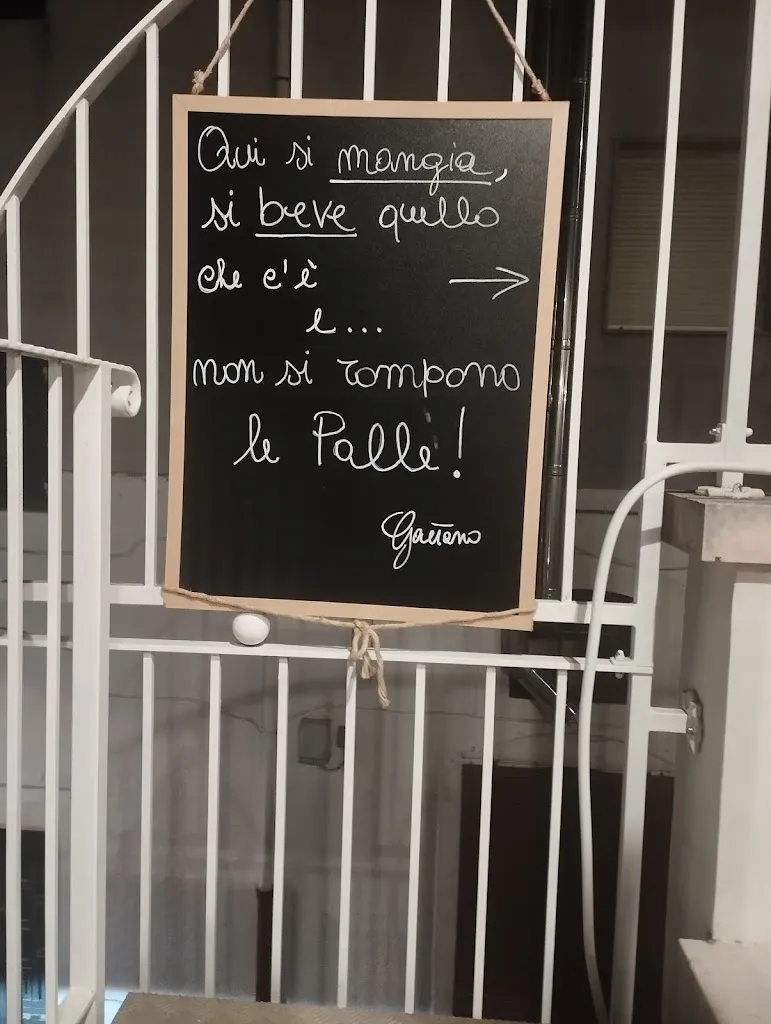 Qui si mangia,
si beve quello
che c'è →
e...
non si rompono
le Palle!
Gaetano